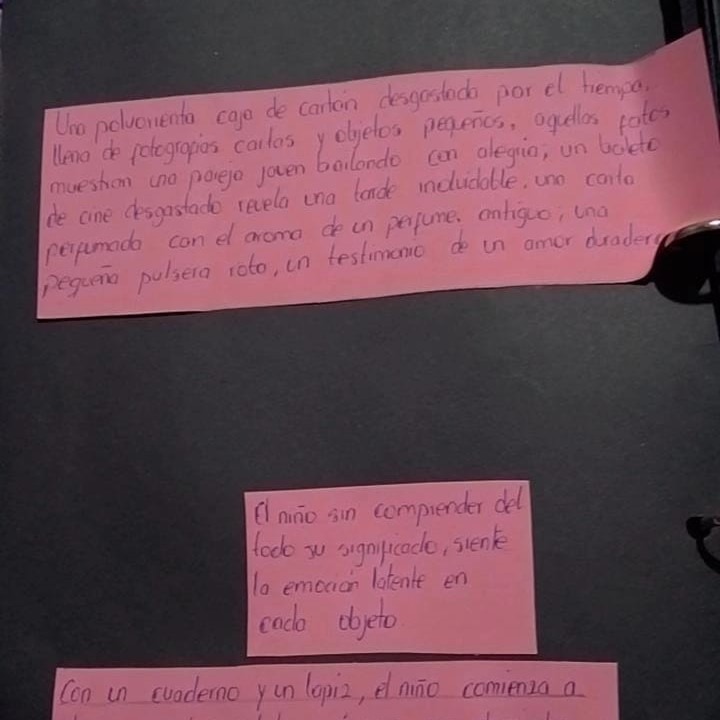 Una polvorienta caja de cartón desgastada por el tiempo.
llena de fotografias cartas y objetos pequeños, aquellas fotos
muestran una pareja joven bailando con alegria; un boleto
de cine desgastado revela una tarde inolvidable. una carta
perfumada con el aroma de un perfume. antiguo; una
pequeña pulsera rota, un testimonio de un amor duradero
El niño sin comprender del
todo su significado, siente
la emoción latente en
cada objeto.
Con un cuaderno y un lapiz, el niño comienza a